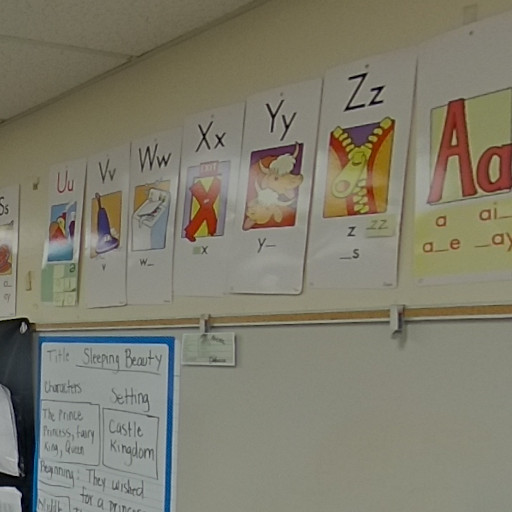 Ss
Uu
Vv
v
Ww
w_
Xx
x
Yy
y_
Zz
z zz
_s
Aa
a ai_
a_e _ay
Title Sleeping Beauty
Characters
Setting
The Prince
Princess, Fairy
King, Queen
Castle
Kingdom
Beginning: They wished
for a princess
Middle